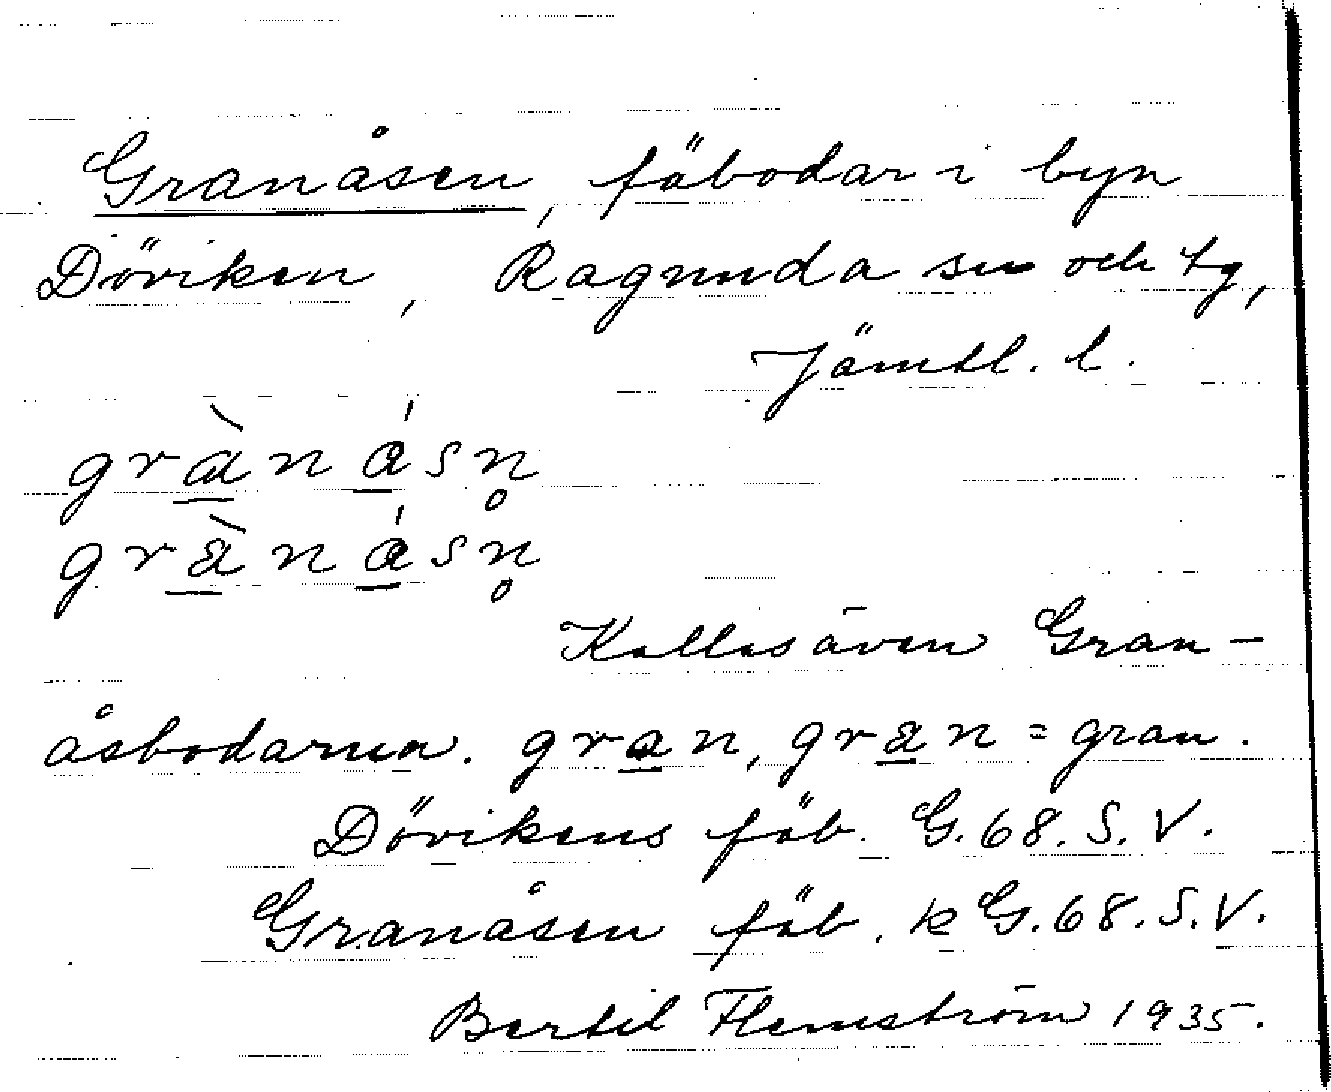 Granåsen, fäbodar i byn
Döviken, Ragunda sn och tg,
Jämtl. l.
grànásn̥
grànásn̥
Kallas även Gran-
åsbodarna. gran, gran = gran.
Dövikens fäb. G.68.S.V.
Granåsen fäb. k G.68.S.V.
Bertil Flemström 1935.